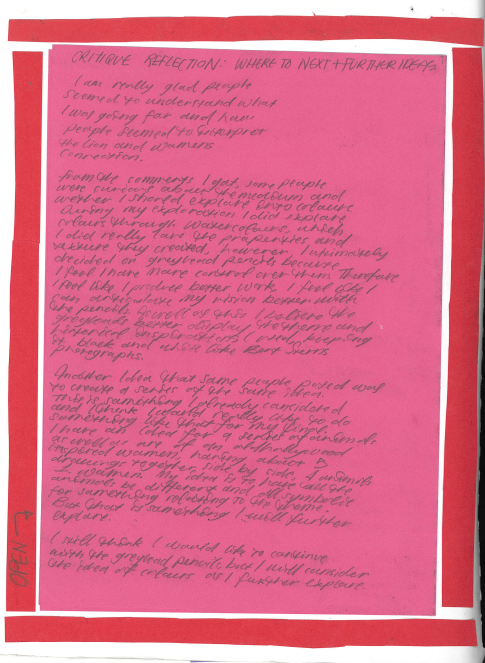 CRITIQUE REFLECTION: WHERE TO NEXT + FURTHER IDEAS
I am really glad people
seemed to understand what
I was going for and how
people seemed to interpret
the lion and womens
connection.
from the comments I got, some people
were curious about the medium and
wether I should explore into colours
During my exploration I did explore
colours through watercolours, which
I did really love the properties and
texture they created, however, I ultimately
decided on greylead pencils because
I feel I have more control over them Therefore
I feel like I produce better work. I feel like I
can articulate my vision better with
the pencils. As well as this I believe the
greyleads better display the theme and
historical inspirations I used, keeping
it black and white like Bert
photographs.
Another idea that some people posed was
to create a series of the same idea.
This is something I already considered
and I think I would really like to do
something like that for my final.
I have an idea for a series of animals
as well as are of an old hollywood
inspired women, having about
drawings together, side by side, of animals
women. My idea is to have all the
animals be different and all symbolic
for something relating to the theme.
But that is something I will further
explore.
I still think I would like to continue
with the greylead pencils, but I will consider
the idea of colours as I further explore.
OPEN →